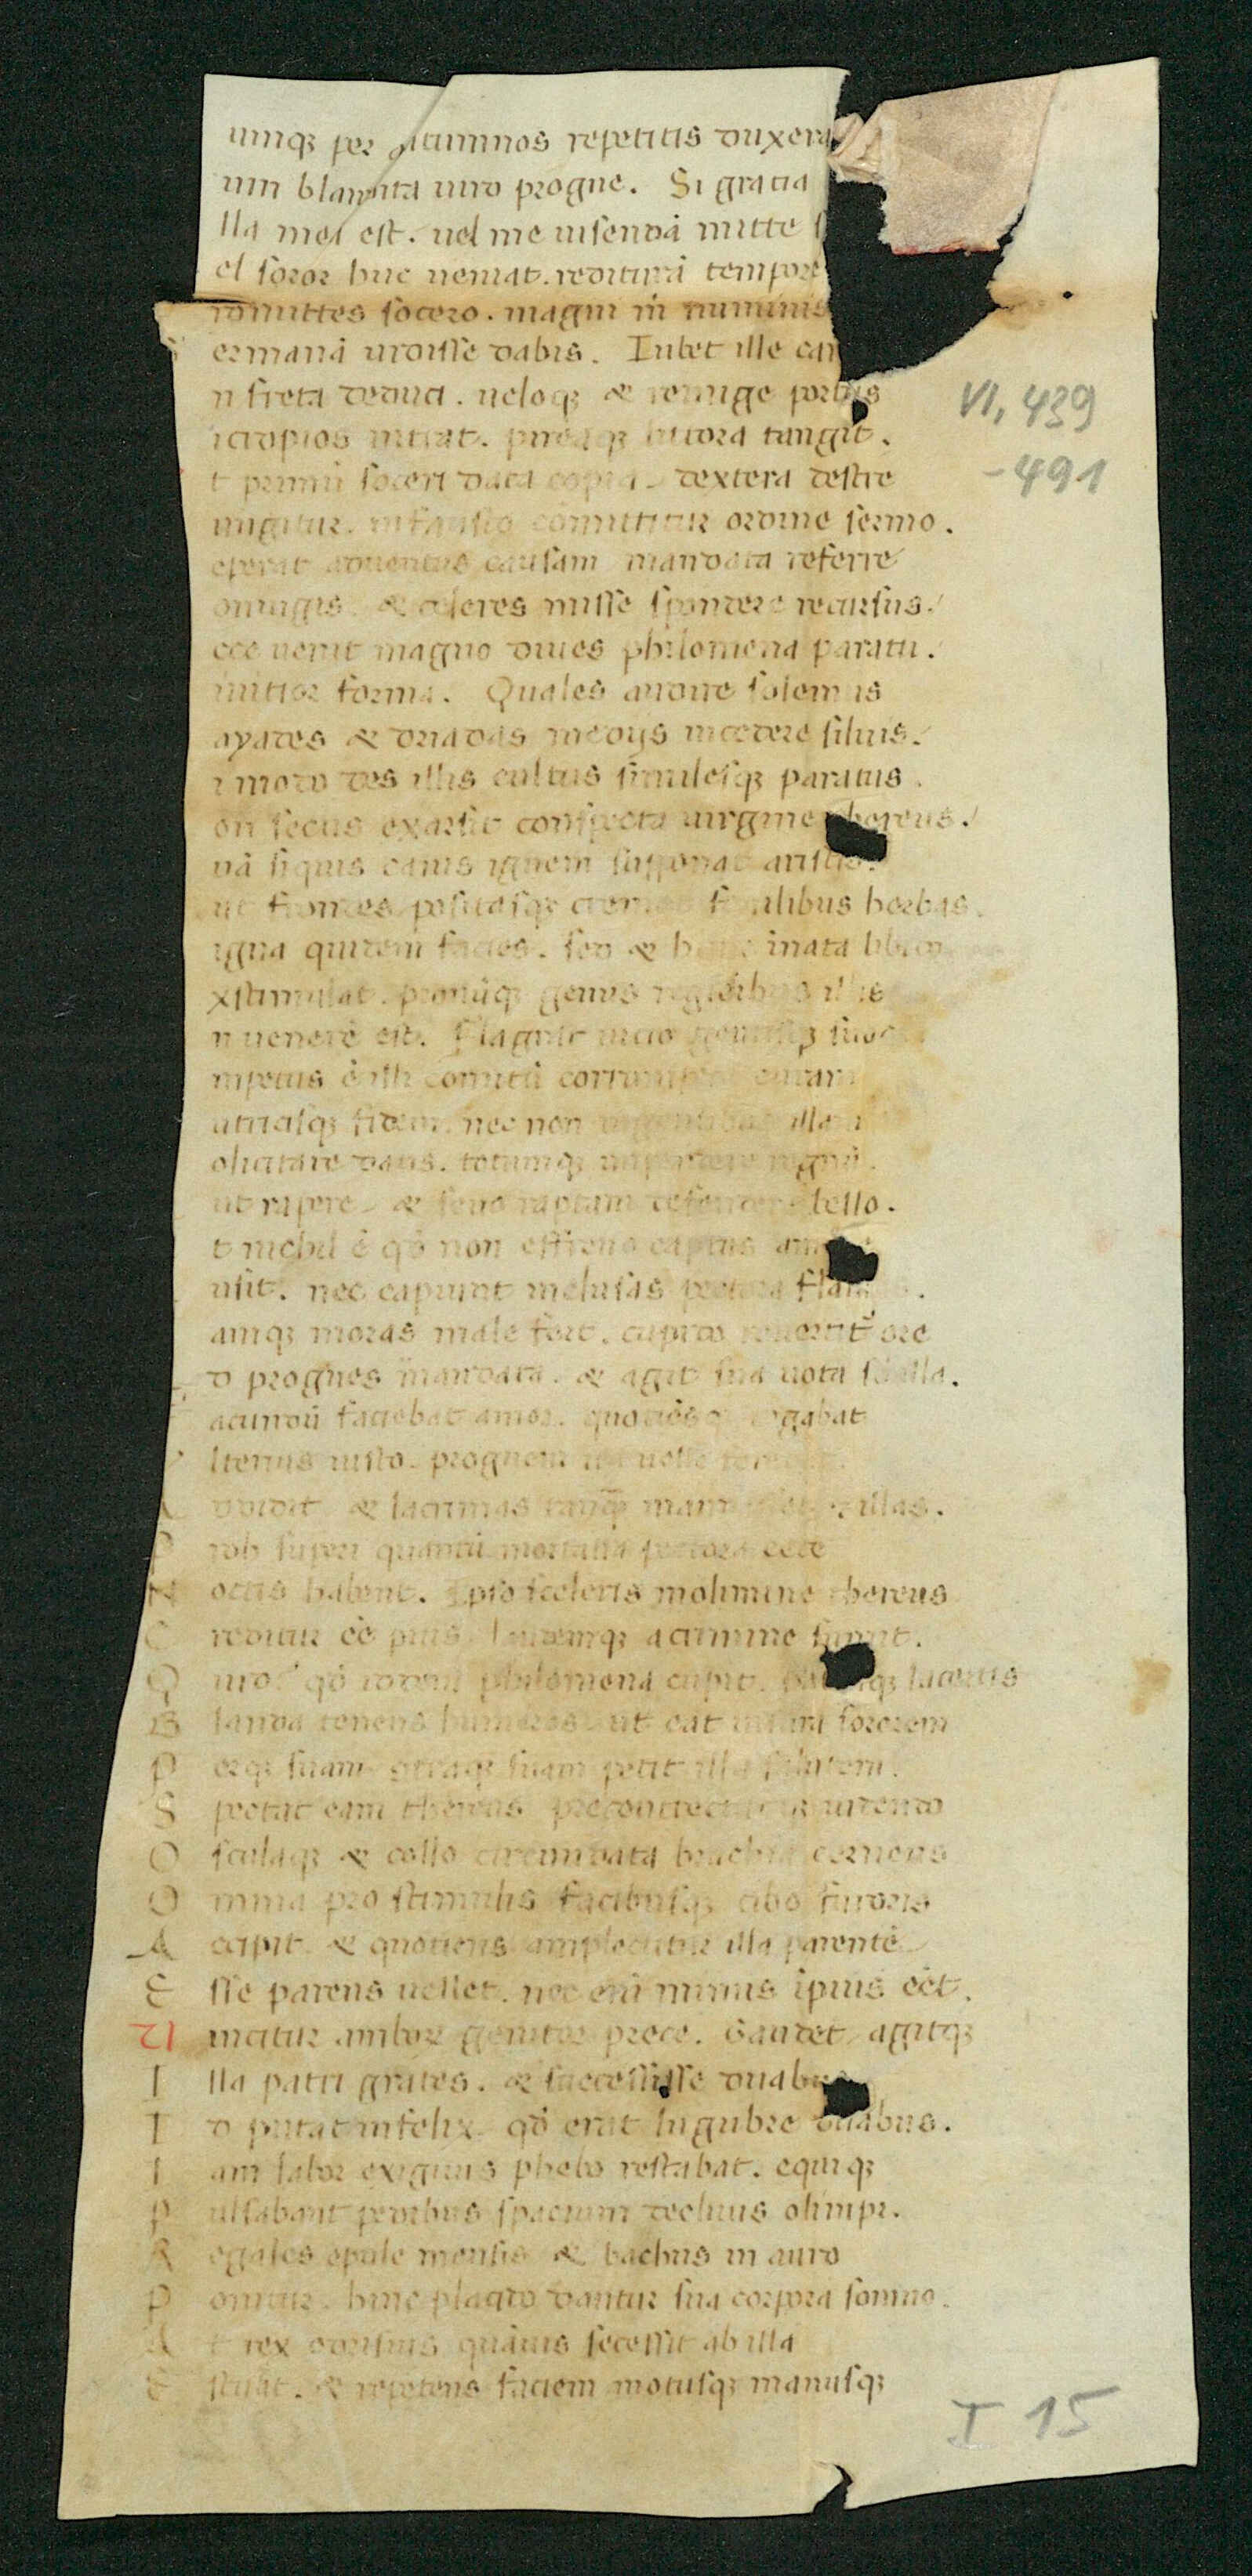 uinqȝ per autumnos repetitis duxera
um blandita uiro progne. Si gratia
lla mea est. uel me uisendā mitte s
el soror huc ueniat. rediturā tempore
romittes socero. magni m̄ numinis
ermanā uidisse dabis. Iubet ille car
n freta deduci. ueloqȝ & remige portus
icropios intrat. pireaqȝ littora tangit.
t primū soceri data copia. dextera dextre
ungitur. infausto committitur ordine sermo.
eperat aduentus causam mandata referre
oniugis. & celeres misse spondere recursus.
cce uenit magno diues philomena paratu.
iuitior forma. Quales audire solemus
ayades & driadas medijs incedere siluis.
i modo des illis cultus similesqȝ paratus.
on secus exarsit conspecta uirgine thereus.
uā siquis canis ignem supponat aristis.
ut frondes positasqȝ cremet fenilibus herbas.
igna quidem facies. sed & hunc inata libido
xstimulat. pronūqȝ genus regionibus illis
n uenerē est. Flagrat uicio gentisqȝ suoqȝ
mpetus ē illi comitū corrumpere curam
utricisqȝ fidem. nec non ingentibus illam
olicitare datis. totumqȝ impendere regnū.
ut rapere & seuo raptam defendere bello.
t nichil ē qđ non effreno captus amore
usit. nec capiunt inclusas pectora flammas.
amqȝ moras male fert. cupido reuertit̉ ore
d prognes mandata. & agit sua uota sub illa.
acundū faciebat amor. quotiēsqȝ rogabat
lterius iusto. prognem ita uelle ferebat.
A ddidit & lacrimas tanq̄ mandasset & illas.
P roh superi quantū mortalia pectora cece
N octis habent. Ipso sceleris molimine thereus
C reditur eē pius. laudemqȝ a crimine sumit.
Q uid qđ idem philomena cupit. patriosqȝ lacertis
B landa tenens humeros. ut eat uisura sororem
P erqȝ suam contraqȝ suam petit illa salutem.
S pectat eam thereus precontrectatqȝ uidendo
O sculaqȝ & collo circumdata brachia cernens
O mnia pro stimulis facibusqȝ ciboqȝ furoris
A ccipit. & quotiens amplectitur illa parentē
E sse parens uellet. nec enī minus ipius eēt.
U incitur amborum genitor prece. Gaudet agitqȝ
I lla patri grates. & successisse duabus
I d putat infelix. qđ erit lugubre duabus.
I am labor exiguus phebo restabat. equiqȝ
P ulsabant pedibus spacium decliuis olimpi.
R egales epule mensis & bachus in auro
P onitur. hinc placido dantur sua corpora somno.
A t rex odrisius quāuis secessit ab illa
E stuat. & repetens faciem motusqȝ manusqȝ
VI, 439
-491
I 15